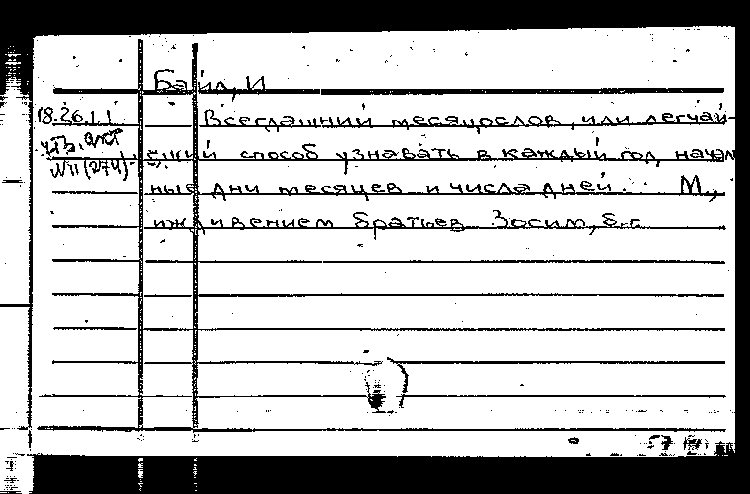 Байл, И
18.26.1.1
Всегдашний месяцослов, или легчай-
ший способ узнавать в каждый год началь
ные дни месяцев и числа дней. М.,
иждивением братьев Зосим, б.г.
57